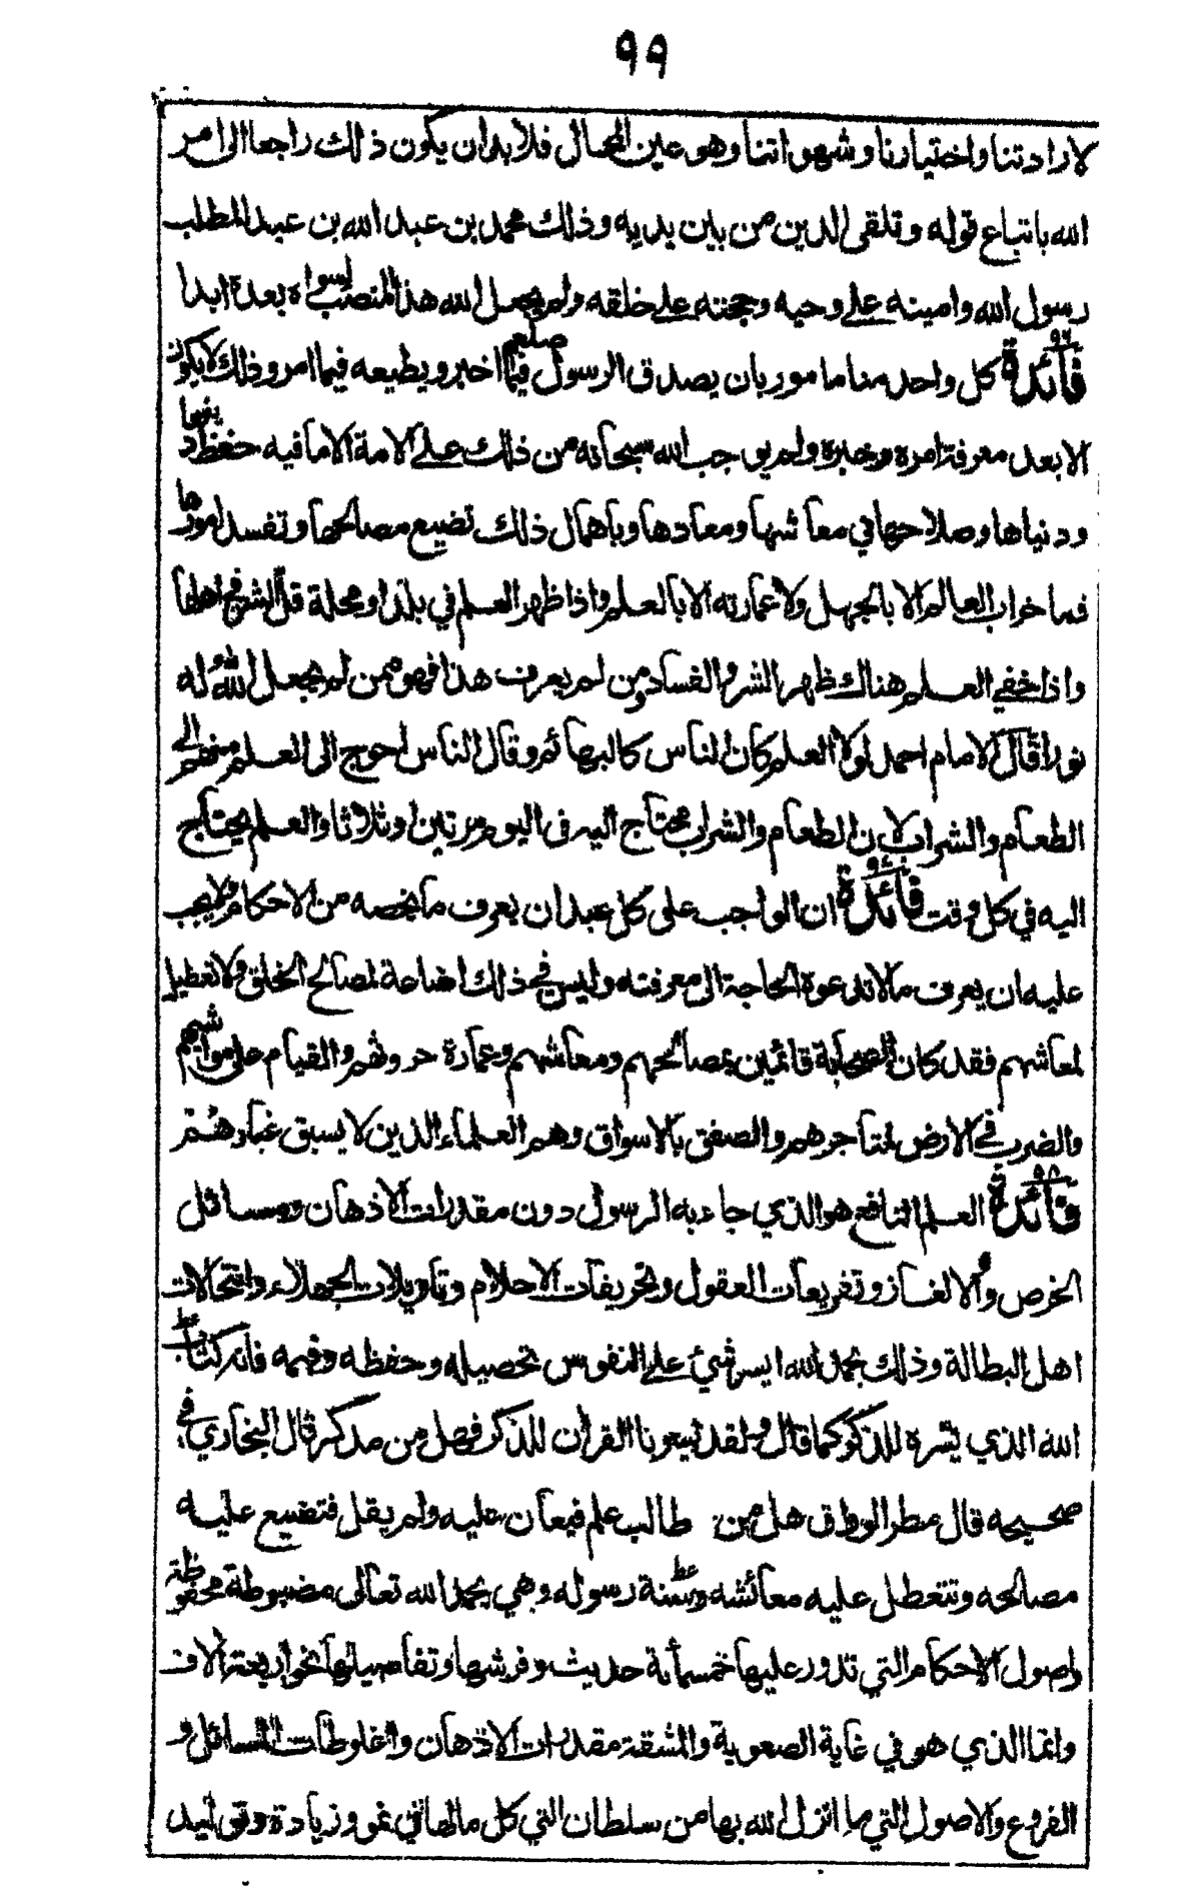 ٩٩
لارادتنا واختيارنا وشهواتنا وهو عين المحال فلا بد ان يكون ذلك راجعا الى امر
الله باتباع قوله وتلقى الدين من بين يديه وذلك محمد بن عبد الله بن عبد المطلب
رسول الله وامينه على وحيه وحجته على خلقه ولم يجعل الله هذا المنصب لسواه بعده ابدا
فائدة ٩٦ كل واحد منا مامور بان يصدق الرسول صلعم فيما اخبر ويطيعه فيما امر وذلك لا يكون
الا بعد معرفة امره وخبره ولم يوجب الله سبحانه من ذلك على الامة الا ما فيه حفظ دينها
ودنياها وصلاحها في معاشها ومعادها وباهمال ذلك تضيع مصالحها وتفسد امورها
فما خراب العالم الا بالجهل ولا عمارته الا بالعلم واذا ظهر العلم في بلد او محلة قل الشر في اهلها
واذا خفي العلم هناك ظهر الشر والفساد ومن لم يعرف هذا فهو ممن لم يجعل الله له
نورا قال الامام احمد لولا العلم كان الناس كالبهائم وقال الناس احوج الى العلم منهم الى
الطعام والشراب لان الطعام والشراب محتاج اليه في اليوم مرتين او ثلاثا والعلم يحتاج
اليه في كل وقت فائدة ٩٧ ان الواجب على كل عبد ان يعرف ما يخصه من الاحكام ولا يجب
عليه ان يعرف ما لا تدعوه الحاجة الى معرفته وليس في ذلك اضاعة لمصالح الخلق ولا تعطيل
لمعاشهم فقد كان الصحابة قائمين بمصالحهم ومعاشهم وعمارة حروثهم والقيام على مواشيهم
والضرب في الارض لمتاجرهم والصفق بالاسواق وهم العلماء الذين لا يسبق غبارهم
فائدة ٩٨ العلم النافع هو الذي جاء به الرسول دون مقدرات الاذهان ومسائل
الخرص والالغاز وتفريعات العقول وتحريفات الاحلام وتاويلات الجهلاء وانتحالات
اهل البطالة وذلك بحمد الله ايسر شيء على النفوس تحصيله وحفظه وفهمه فانه كتاب
الله الذي يسره للذكر كما قال ولقد يسرنا القرآن للذكر فهل من مدكر قال البخاري في
صحيحه قال مطر الوراق هل من طالب علم فيعان عليه ولم يقل فتضيع عليه
مصالحه وتتعطل عليه معائشه وسنة رسوله وهي بحمد الله تعالى مضبوطة محفوظة
واصول الاحكام التي تدور عليها خمسمائة حديث وفرشها وتفاصيلها نحو اربعة آلاف
وانما الذي هو في غاية الصعوبة والمشقة مقدرات الاذهان واغلوطات المسائل و
الفروع والاصول التي ما انزل الله بها من سلطان التي كل مالها في نمو وزيادة وتوليد